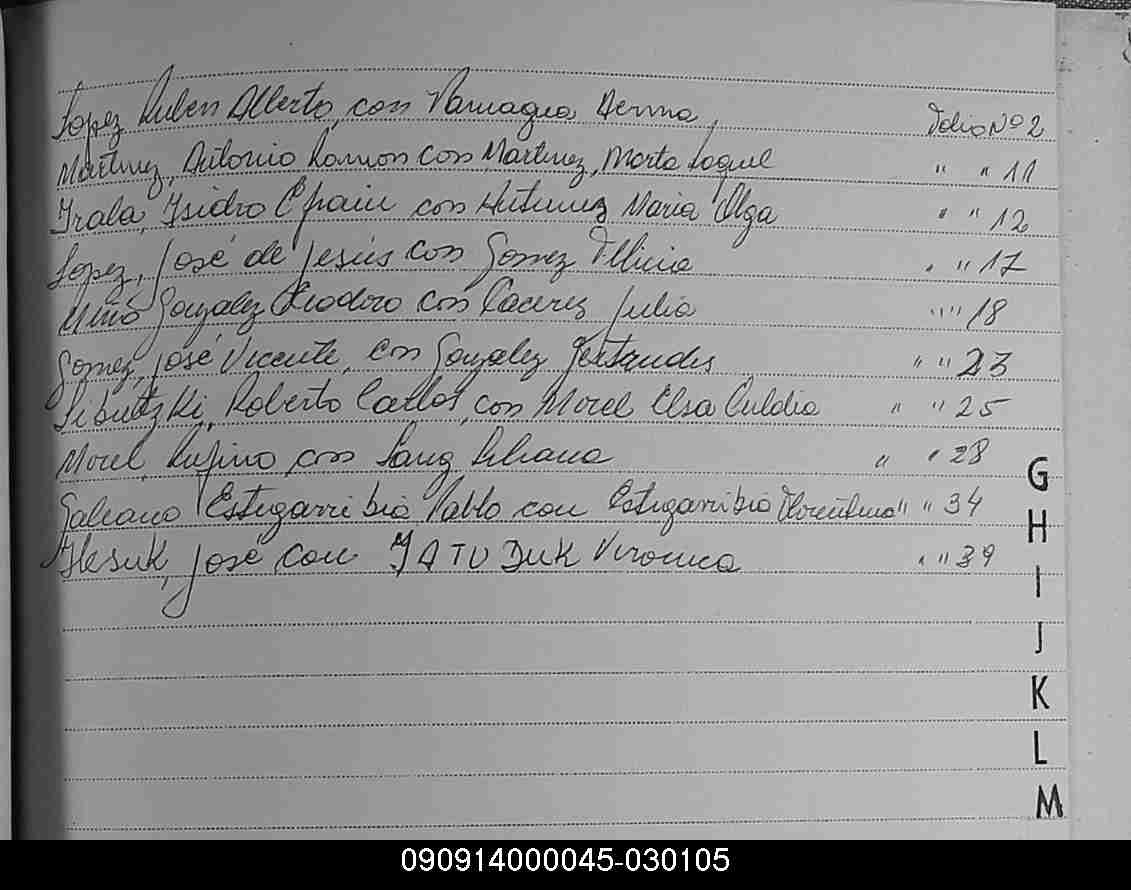 Lopez Ruben Alberto, con Maria Folio Nº 2
Martinez, Antonio Ramon con Martinez, Marta Raquel " " 11
Irala, Isidro Efrain con Antunez Maria Olga " " 12
Lopez, José de Jesús con Gomez " " 17
Miño Gonzalez Teodoro con Caceres Julia " " 18
Gomez, José Vicente, con Gonzalez Gertrudis " " 23
Roberto Carlos, con Morel Elsa " " 25
Morel, Rufino con Sanz Liliana " " 28
Galeano Estigarribia Pablo con Estigarribia Florentina " " 34
José con Veronica " " 39
G
H
I
J
K
L
M
090914000045-030105